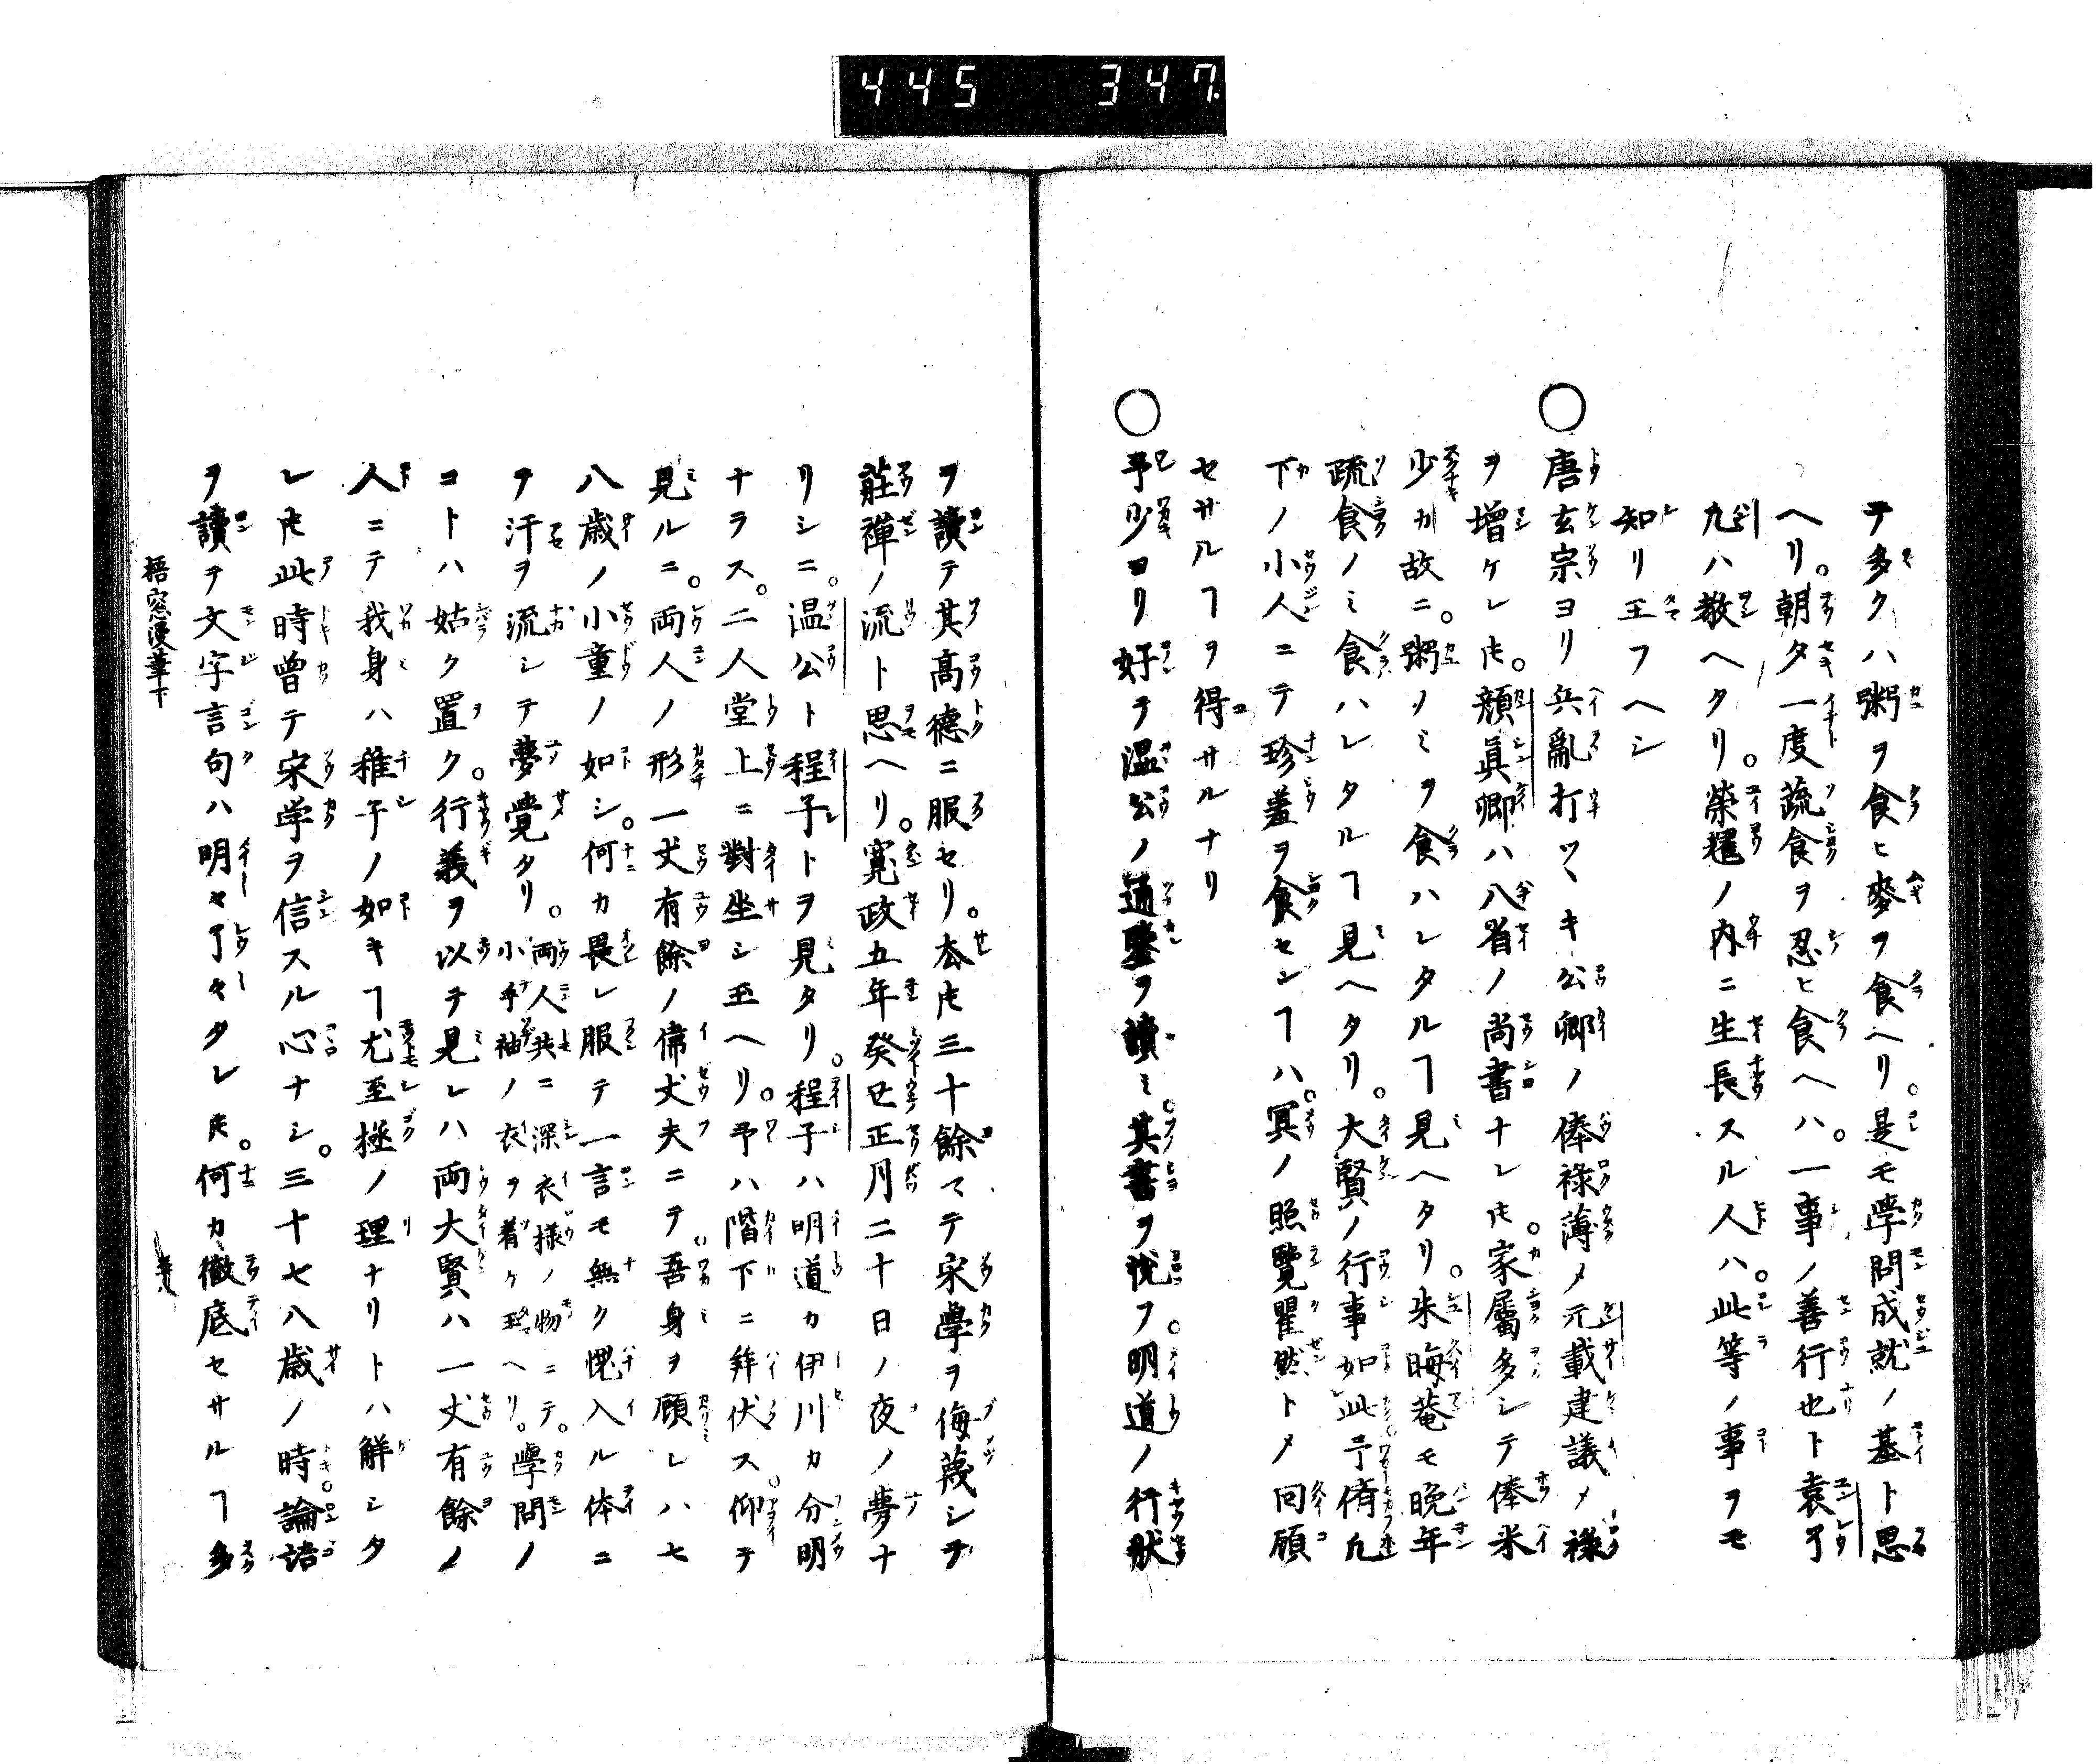 445 347
テ多クハ粥ヲ食ヒ麥ヲ食ヘリ。是モ學問成就ノ基ト思
ヘリ。朝夕一度蔬食ヲ忍ヒ食ヘハ。一事ノ善行也ト袁了
凡ハ教ヘタリ。榮耀ノ内ニ生長スル人ハ。此等ノ事ヲモ
知リ玉フヘシ
○唐玄宗ヨリ兵亂打ツヽキ公卿ノ俸祿薄メ元載建議メ祿
ヲ増ケレ𪜈。顔眞卿ハ八省ノ尚書ナレ𪜈。家屬多シテ俸米
少カ故ニ。粥ノミヲ食ハレタルヿ見ヘタリ。朱晦菴モ晩年
蔬食ノミ食ハレタルヿ見ヘタリ。大賢ノ行事如此予儕凡
下ノ小人ニテ珍羞ヲ食センヿハ。冥ノ照覽瞿然トメ回顧
セサルヿヲ得サルナリ
○予少ヨリ好テ温公ノ通鑒ヲ讀ミ。其書ヲ悅フ。明道ノ行狀
ヲ讀テ其高德ニ服セリ。然𪜈三十餘マテ宋學ヲ侮蔑シテ
莊禪ノ流ト思ヘリ。寛政五年癸丑正月二十日ノ夜ノ夢ナ
リシニ。温公ト程子トヲ見タリ。程子ハ明道カ伊川カ分明
ナラス。二人堂上ニ對坐シ玉ヘリ。予ハ階下ニ拜伏ス。仰テ
見ルニ。両人ノ形一丈有餘ノ偉丈夫ニテ。吾身ヲ顧レハ七
八歳ノ小童ノ如シ。何カ畏レ服テ一言モ無ク愧入ル体ニ
テ汗ヲ流シテ夢覺タリ。両人共ニ深衣様ノ物ニテ。小手袖ノ衣ヲ着ケ玉ヘリ。學問ノ
コトハ姑ク置ク。行義ヲ以テ見レハ両大賢ハ一丈有餘ノ
人ニテ我身ハ稚子ノ如キヿ尤至極ノ理ナリトハ解シタ
レ𪜈此時曾テ宋学ヲ信スル心ナシ。三十七八歳ノ時。論語
ヲ讀テ文字言句ハ明々了々タレ𪜈。何カ徹底セサルヿ多
梧窓漫筆下